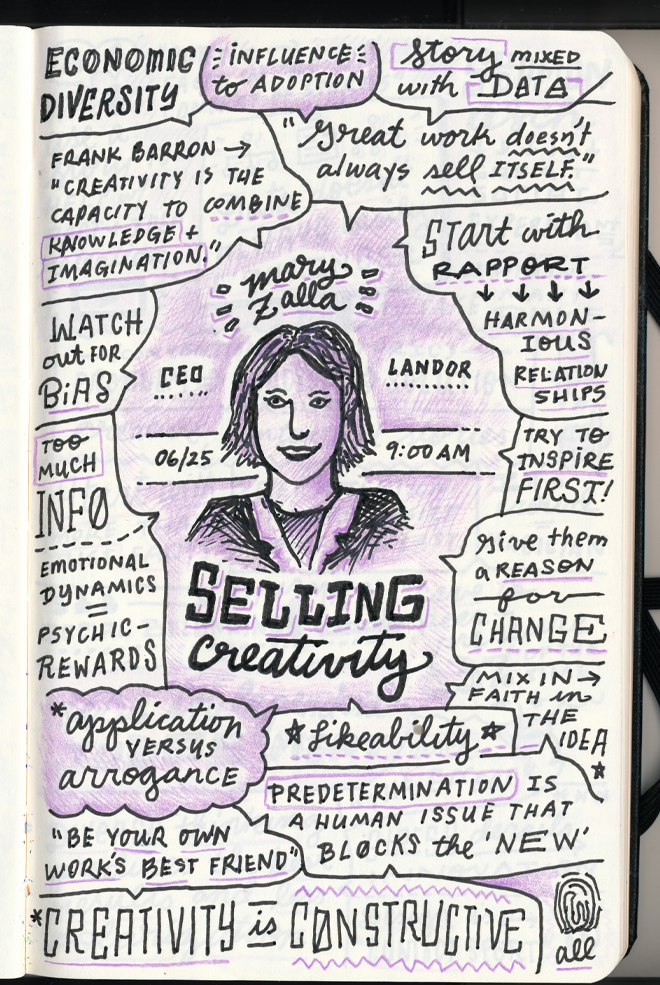 ECONOMIC
DIVERSITY
INFLUENCE
to ADOPTION
Story MIXED
with DATA
"Great work doesn't
always sell ITSELF."
FRANK BARRON →
"CREATIVITY IS THE
CAPACITY TO COMBINE
KNOWLEDGE +
IMAGINATION."
START with
RAPPORT
↓ ↓ ↓ ↓
HARMON-
IOUS
RELATION
SHIPS
mary
zalla
CEO
LANDOR
06/25
9:00 AM
WATCH
out FOR
BiAS
TOO
MUCH
INFO
EMOTIONAL
DYNAMICS
=
PSYCHIC-
REWARDS
TRY TO
INSPIRE
FIRST!
give them
a REASON
for
CHANGE
SELLING
creativity
MIX IN →
FAITH in
THE
IDEA
*
*application
VERSUS
arrogance
* likeability *
PREDETERMINATION IS
A HUMAN ISSUE THAT
BLOCKS the 'NEW'
"BE YOUR OWN
WORK'S BEST FRIEND"
*CREATIVITY is CONSTRUCTIVE
all